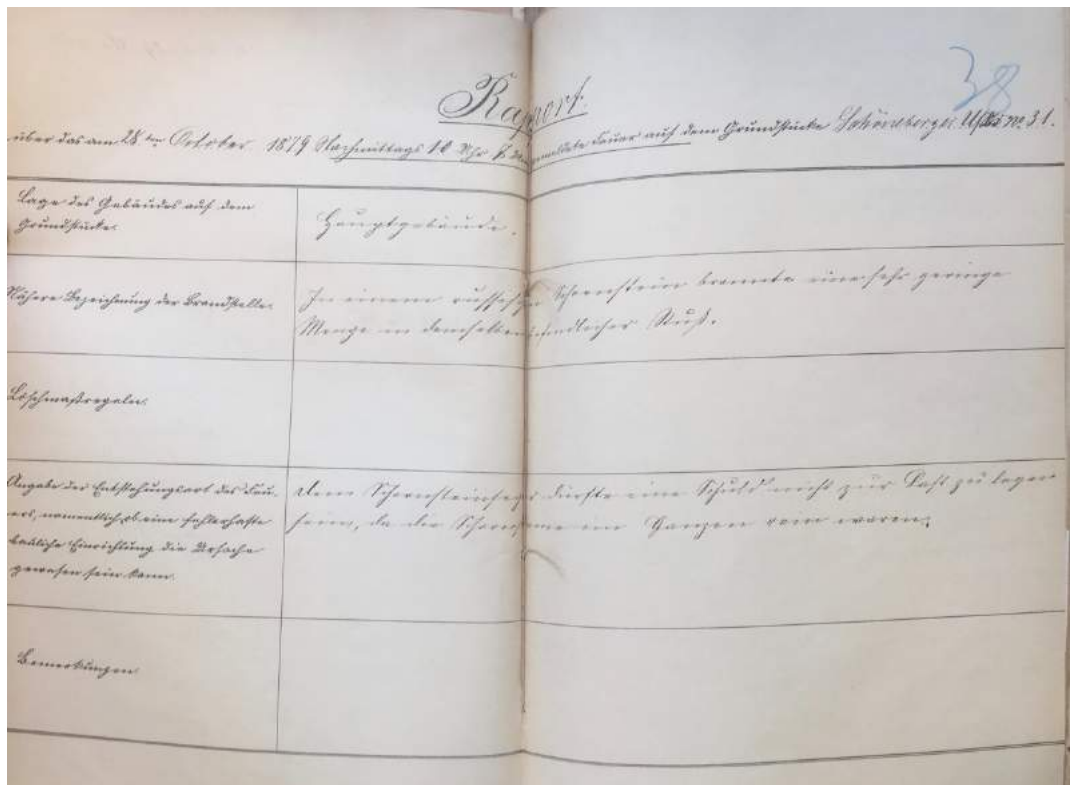 38
Rapport
über das am 28 ten October 1879 Nachmittags 10 Uhr gemeldete Feuer auf dem Grundstücke Schöneberger Ufer No. 31.
Lage des Gebäudes auf dem
Grundstücke.
Hauptgebäude.
Nähere Bezeichnung der Brandstelle.
In einem russischen Schornstein brannte eine sehr geringe
Menge in demselben befindlicher Ruß.
Löschmaßregeln.
Angabe der Entstehungsart des Feu-
ers, namentlich ob eine fehlerhafte
bauliche Einrichtung die Ursache
gewesen sein kann.
Dem Schornsteinfeger dürfte eine Schuld nicht zur Last zu legen
sein, da die Schornsteine im Ganzen rein waren.
Bemerkungen